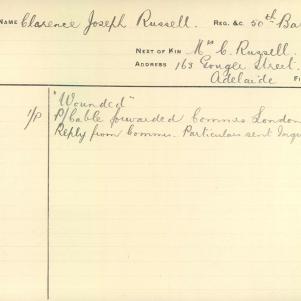 NAME Clarence Joseph Russell. REG. &C. 50th Ba
NEXT OF KIN Mrs C. Russell.
ADDRESS 163 Gouger Street.
Adelaide F
"Wounded"
1/P P/Cable forwarded Commrs London
Reply from Commrs. Particulars sent Inqu